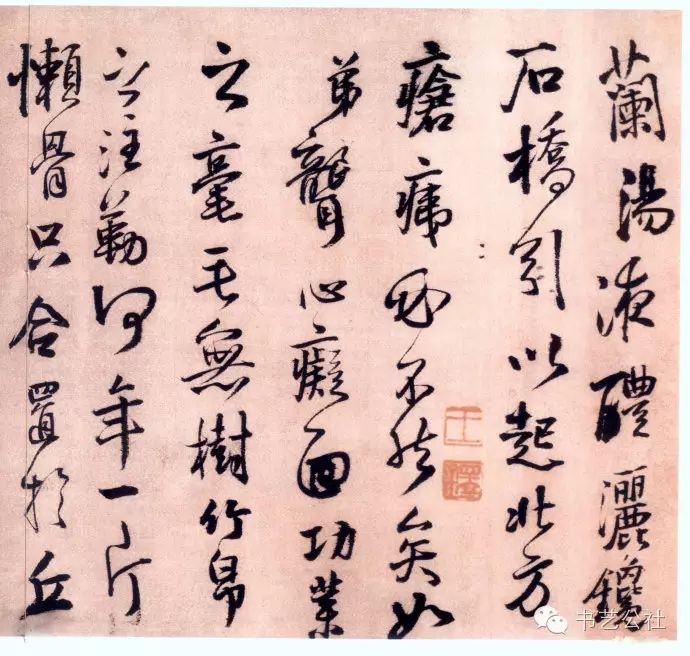 蘭湯液醴灑鑱
石橋引以起北方
瘡痍不矣如
弟聾心癡面功業
之毫毛無樹竹帛
之注勒何年一斤
懶骨只合置於丘
王鐸
书艺公社